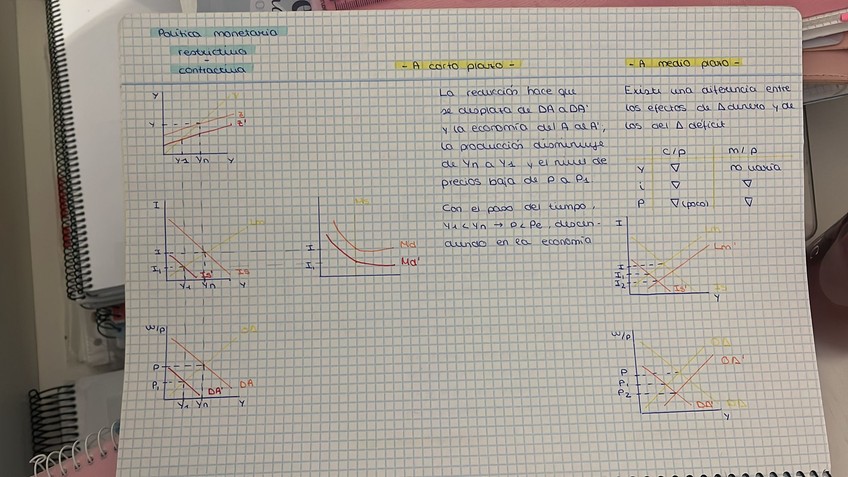 Política monetaria
restrictiva
-
contractiva
- A corto plazo -
La reducción hace que
se desplaza de DA a DA'
y la economía del A al A',
la producción disminuye
de Yn a Y1 y el nivel de
precios baja de P a P1
Con el paso del tiempo,
Y1 < Yn → P < Pe, descen-
diendo en la economía
- A medio plazo -
Existe una diferencia entre
los efectos de Δ dinero y de
los del Δ déficit
C/P m/P
Y ▽ no varía
i ▽ ▽
P ▽ (poco) ▽
Y
Y
Z
Z'
Y
Y1 Yn Y
I
Lm
I
I1
IS' IS
Y1 Yn Y
I
I1
Md
Md'
W/P
P
P1
DA' DA
Y1 Yn Y
I
Lm
Lm'
I
I1
I2
IS'
Y
W/P
OA
OA'
P
P1
P2
DA'
Y